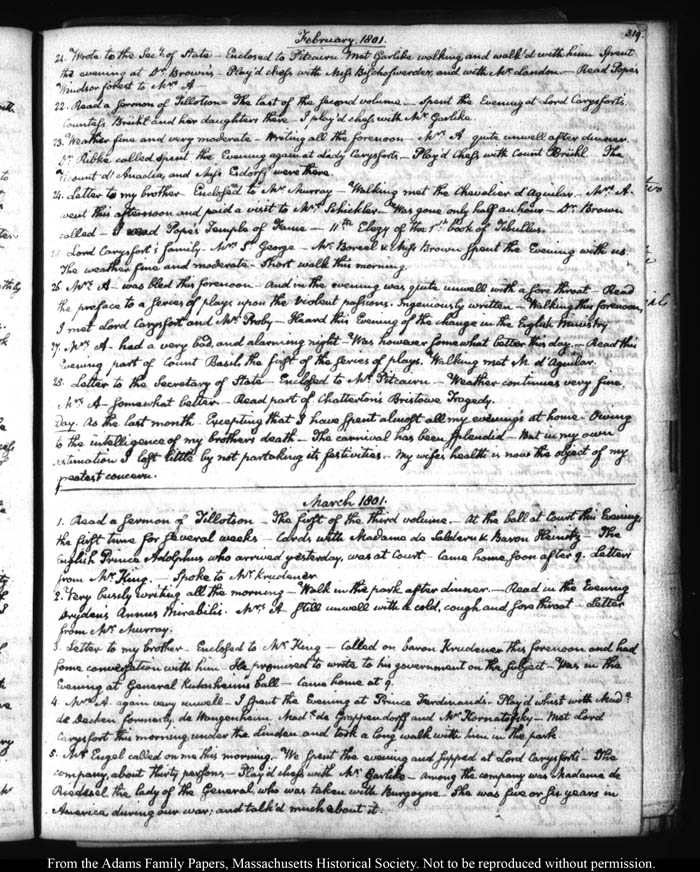 February. 1801.
319.
21. Wrote to the Secy. of State – Enclosed to Pitcairn. Met Garlike walking, and walk'd with him. Spent
the evening at Dr. Brown's – Play'd chess with Miss Bischofwerder, and with Mr. Landon – Read Pope's
Windsor forest to Mrs. A –
22. Read a sermon of Tillotson – The last of the second volume – Spent the Evening at Lord Carysfort's.
Countess Brühl and her daughters there. I play'd chess with Mr. Garlike.
23. Weather fine and very moderate – Writing all the forenoon – Mrs. A. quite unwell after dinner.
Dr. Ribke called. Spent the Evening again at Lady Carysfort's – Play'd Chess with Count Brühl. The
Viscount d'Anadia, and Miss were there.
24. Letter to my brother – Enclosed to Mr. Murray – Walking met the Chevalier d'Aguilar – Mrs. A.
went this afternoon and paid a visit to Mrs. Schickler – Was gone only half an hour – Dr. Brown
called – I read Pope's Temple of Fame – 11th. Elegy of the 1st. book of Tibullus.
25. Lord Carysfort's family – Mrs. St. George – Mr. Boreel & Miss Brown spent the Evening with us.
The weather fine and moderate – Short walk this morning.
26. Mrs. A – was bled this forenoon – And in the evening was quite unwell with a sore throat – Read
the preface to a series of plays upon the violent passions. Ingeniously written – Walking this forenoon,
I met Lord Carysfort and Mr. Proby – Heard this Evening of the change in the English Ministry
27. Mrs. A – had a very bad, and alarming night – Was however somewhat better this day. – Read this
Evening part of Count Basil, the first of the series of plays. Walking met M. d'Aguilar.
28. Letter to the Secretary of State – Enclosed to Mr. Pitcairn – Weather continues very fine.
Mrs. A – somewhat better – Read part of Chatterton's Bristowe Tragedy.
Day. As the last month – Excepting that I have spent almost all my evenings at home – Owing
to the intelligence of my brother's death – The carnival has been splendid – But in my own
estimation I lost little by not partaking its festivities. – My wife's health is now the object of my
greatest concern.
March 1801.
1. Read a sermon of Tillotson – The first of the third volume. – At the ball at Court this Evening;
the first time for several weeks – Cards with Madame de Saldern & Baron Heinitz – The
English Prince Adolphus who arrived yesterday, was at Court – Came home soon after 9. Letters
from Mr. King. – Spoke to Mr. Krudener
2. Very busily writing all the morning – Walk in the park after dinner. – Read in the Evening
Dryden's Annus Mirabilis. Mrs. A still unwell with a cold, cough and sore throat – Letter
from Mr. Murray.
3. Letter to my brother – Enclosed to Mr. King – Called on baron Krudener this forenoon and had
some conversation with him – He promised to write to his government on the subject – Was in the
Evening at General Kuhnheim's ball – Came home at 9.
4. Mrs. A again very unwell – I spent the Evening at Prince Ferdinand's. Play'd whist with Made.
de Decken formerly, de Wangenheim, Made. de and Mr. – Met Lord
Carysfort this morning, under the linden and took a long walk with him in the park
5. Mr. Engel called on me this morning. We spent the evening and supped at Lord Carysfort's – The
company, about thirty persons – Play'd chess with Mr. Garlike – Among the company was Madame de
Riedesel the lady of the General, who was taken with Burgoyne. She was five or six years in
America during our war; and talk'd much about it.
From the Adams Family Papers, Massachusetts Historical Society. Not to be reproduced without permission.